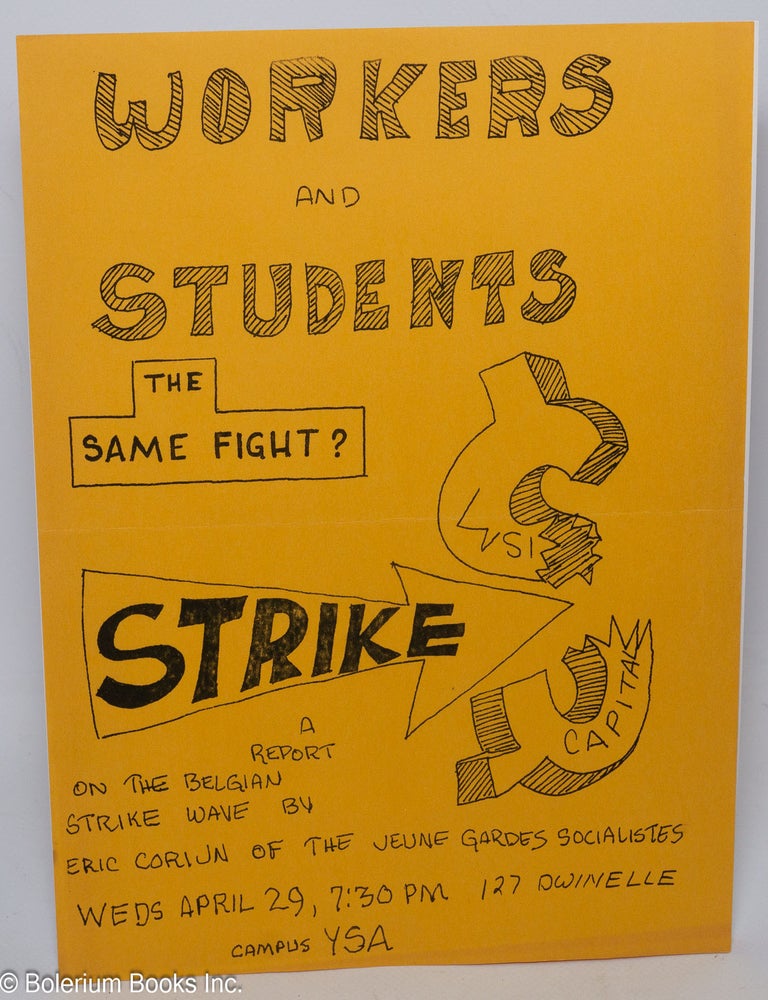 WORKERS
AND
STUDENTS
THE
SAME FIGHT?
SI
STRIKE
CAPITAL
A
REPORT
ON THE BELGIAN
STRIKE WAVE BY
ERIC CORIJN OF THE JEUNE GARDES SOCIALISTES
WEDS APRIL 29, 7:30 PM 127 DWINELLE
CAMPUS YSA
© Bolerium Books Inc.